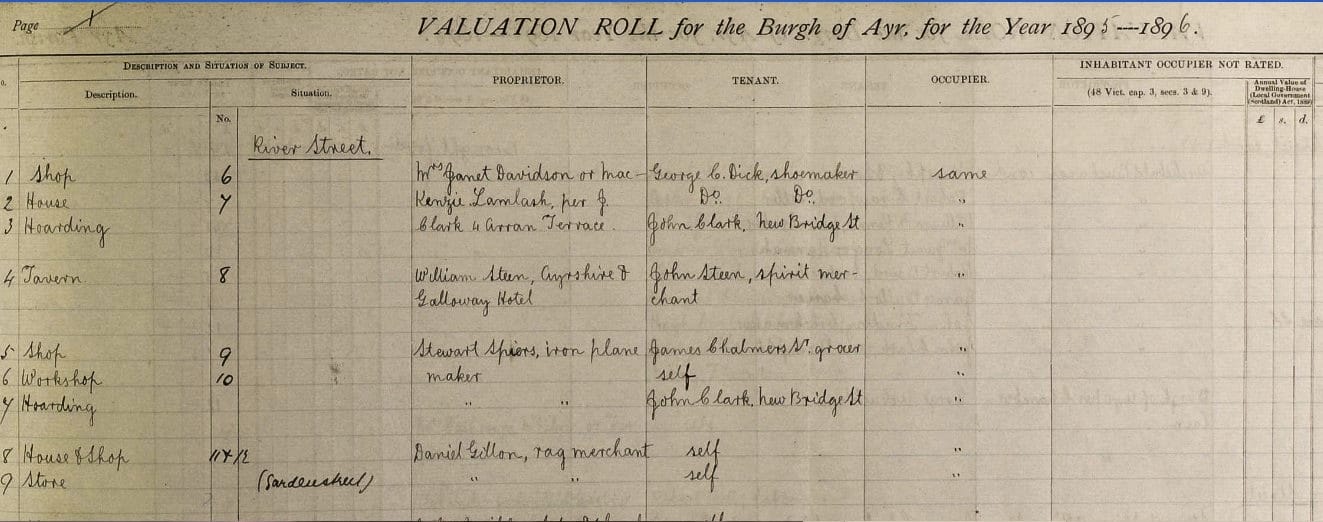 Page 1
VALUATION ROLL for the Burgh of Ayr, for the Year 1895—1896.
DESCRIPTION AND SITUATION OF SUBJECT. PROPRIETOR. TENANT. OCCUPIER. INHABITANT OCCUPIER NOT RATED.
Description. Situation. (48 Vict. cap. 3, secs. 3 & 9). Annual Value of Dwelling-House (Local Government (Scotland) Act, 1889)
No. £ s. d.
River Street.
1 Shop 6 Mrs Janet Davidson or Mac- George C. Dick, shoemaker same
2 House 7 Kenzie Lamlash, per J. Do. Do. "
3 Hoarding Clark 4 Arran Terrace. John Clark, New Bridge St "
4 Tavern 8 William Steen, Ayrshire & John Steen, spirit mer- "
Galloway Hotel chant
5 Shop 9 Stewart Spiers, iron plane James Chalmers Sr. grocer "
6 Workshop 10 maker self "
7 Hoarding " " John Clark, New Bridge St "
8 House & Shop 11+12 Daniel Gillon, rag merchant self "
9 Store (Garden street) " " self "